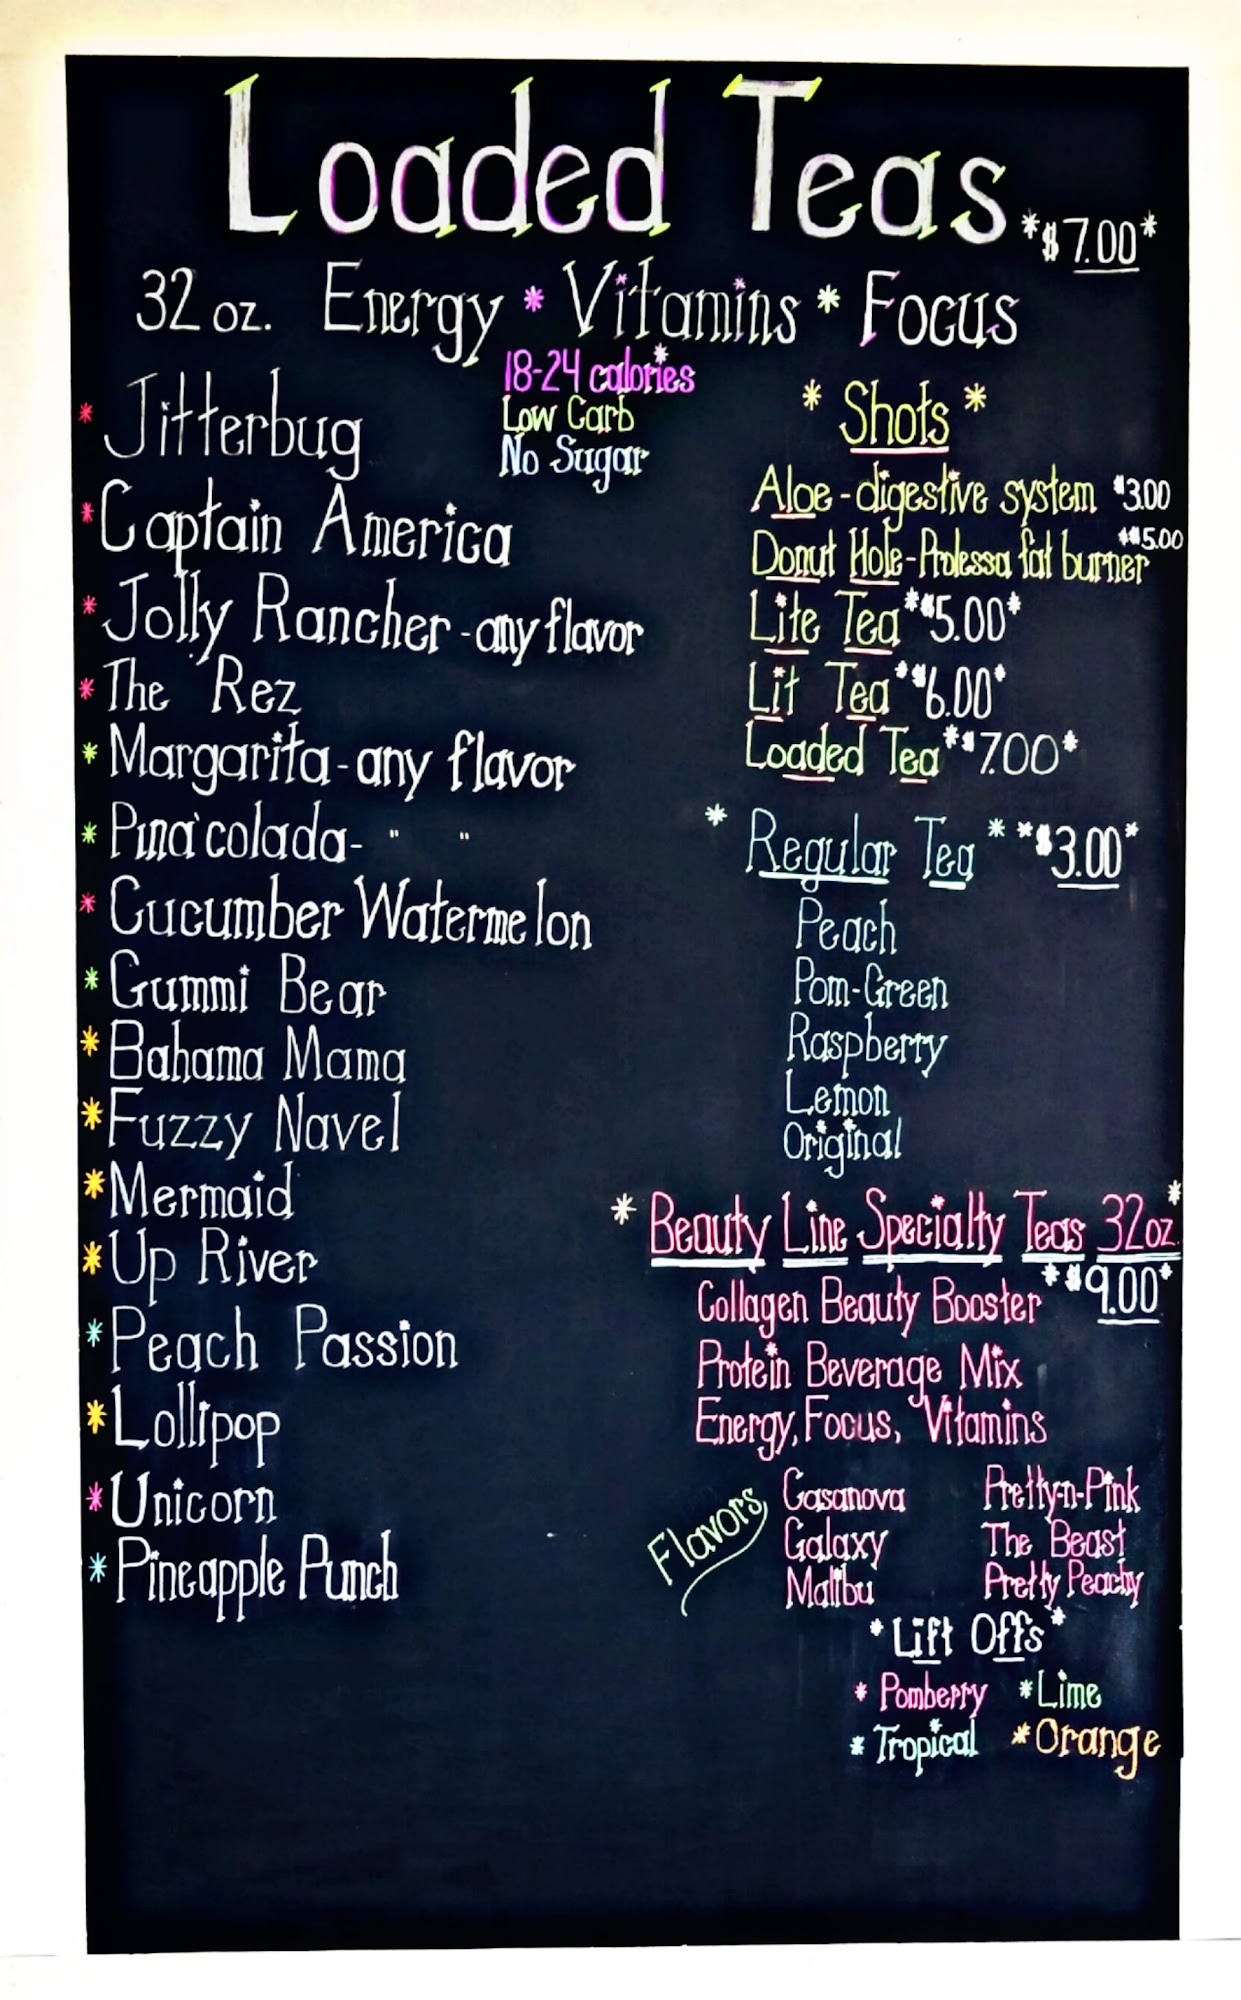 Loaded Teas *$7.00*
32 oz. Energy * Vitamins * Focus
18-24 calories
Low Carb
No Sugar
* Jitterbug
* Captain America
* Jolly Rancher - any flavor
* The Rez
* Margarita - any flavor
* Pina colada - " "
* Cucumber Watermelon
* Gummi Bear
* Bahama Mama
* Fuzzy Navel
* Mermaid
* Up River
* Peach Passion
* Lollipop
* Unicorn
* Pineapple Punch
* Shots *
Aloe - digestive system $3.00
Donut Hole - Prolessa fat burner *$5.00
Lite Tea *$5.00*
Lit Tea *$6.00*
Loaded Tea *$7.00*
* Regular Tea * *$3.00*
Peach
Pom-Green
Raspberry
Lemon
Original
* Beauty Line Specialty Teas 32oz. *
*$9.00*
Collagen Beauty Booster
Protein Beverage Mix
Energy, Focus, Vitamins
Flavors
Casanova Pretty-n-Pink
Galaxy The Beast
Malibu Pretty Peachy
* Lift Offs *
* Pomberry * Lime
* Tropical * Orange